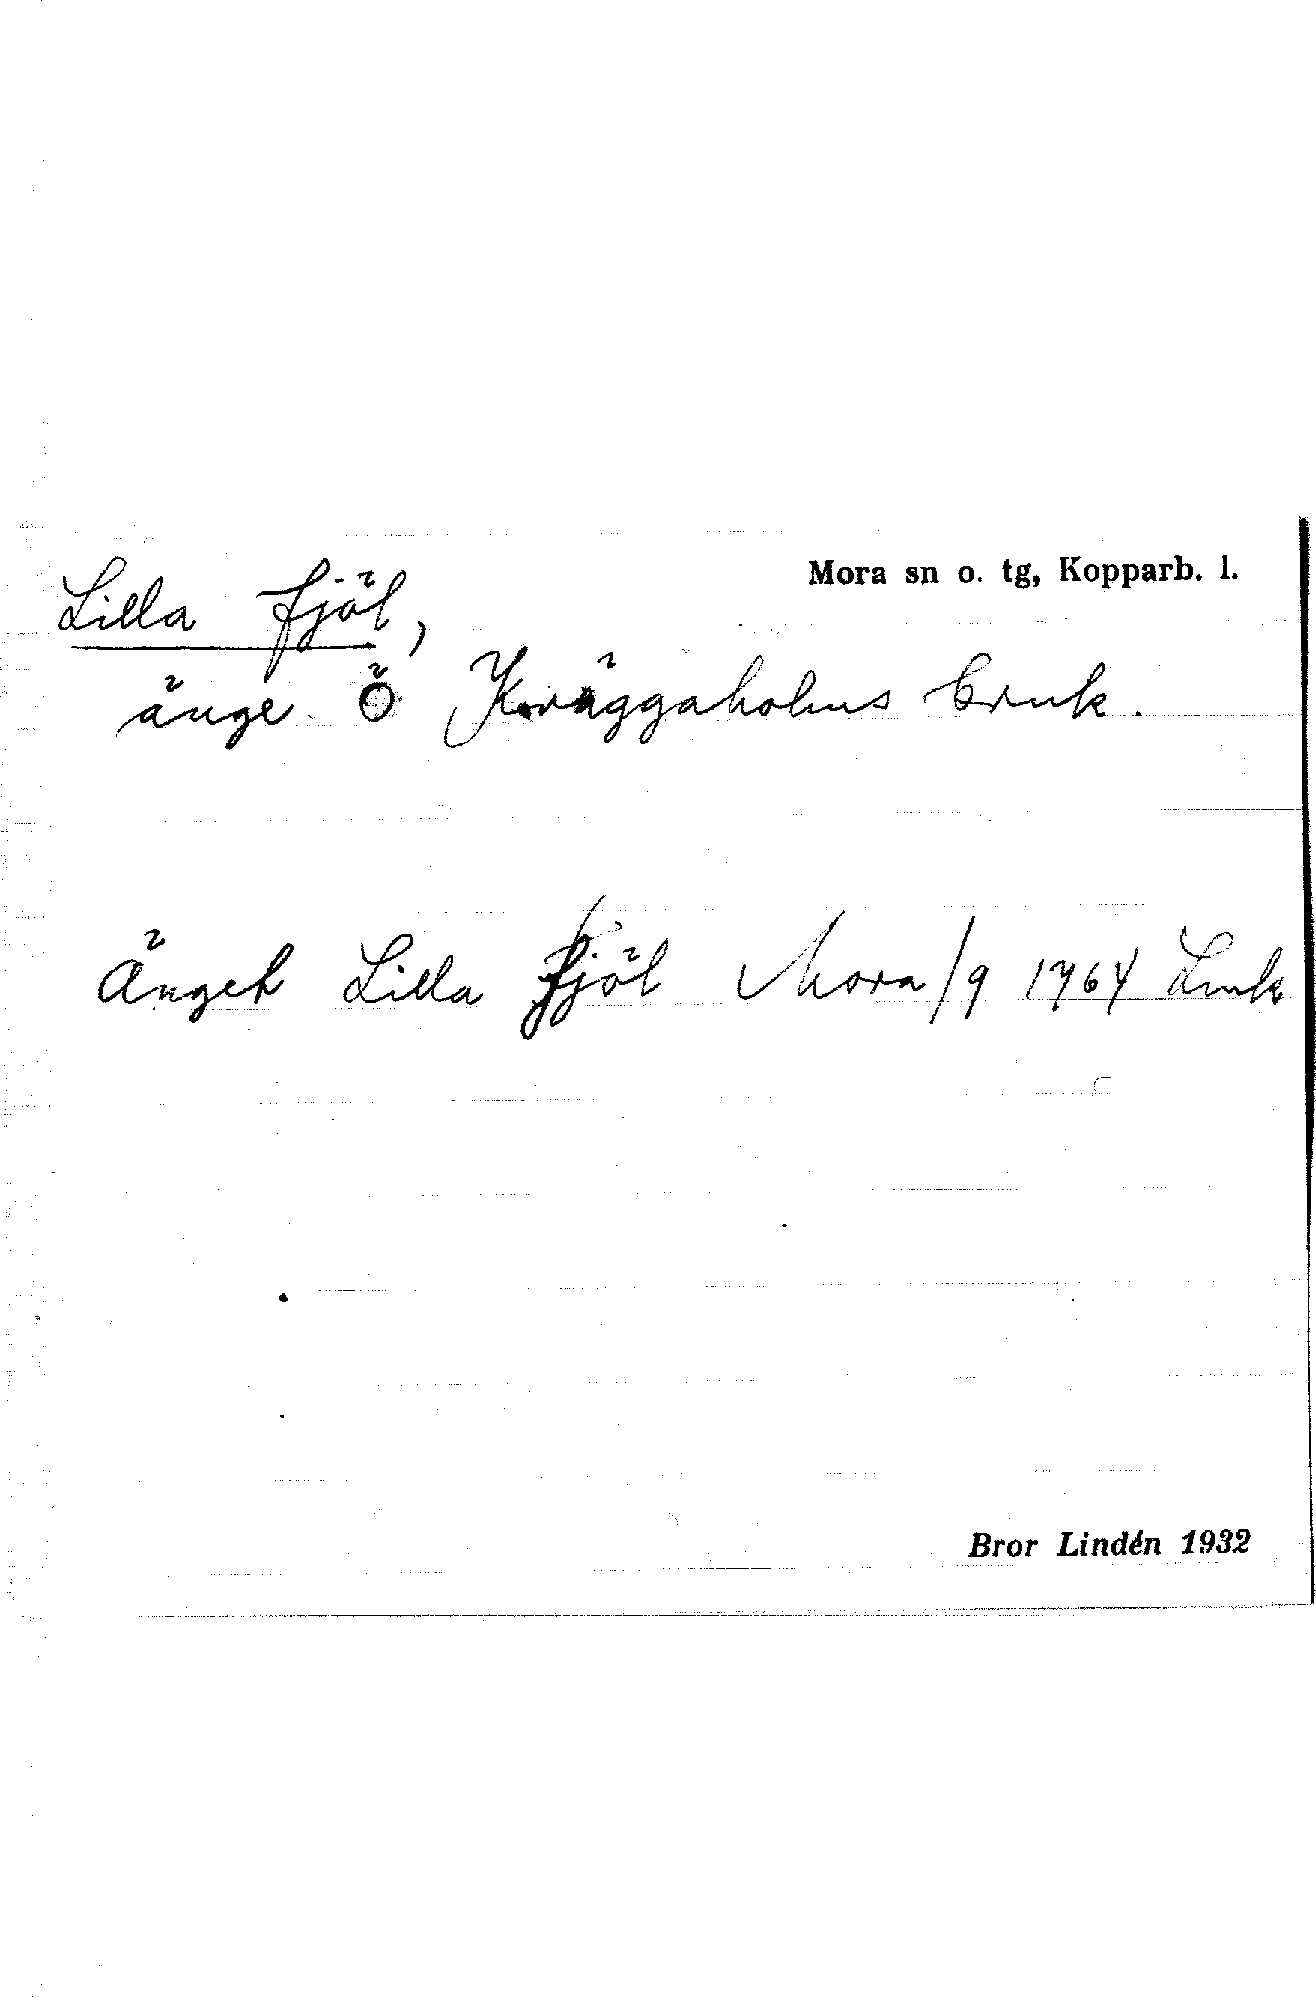 Mora sn o. tg, Kopparb. l.
Lilla fjöl,
änge Ö Kväggaholms bruk.
Änget Lilla fjöl Mora/9 1764 Lmk
Bror Lindén 1932